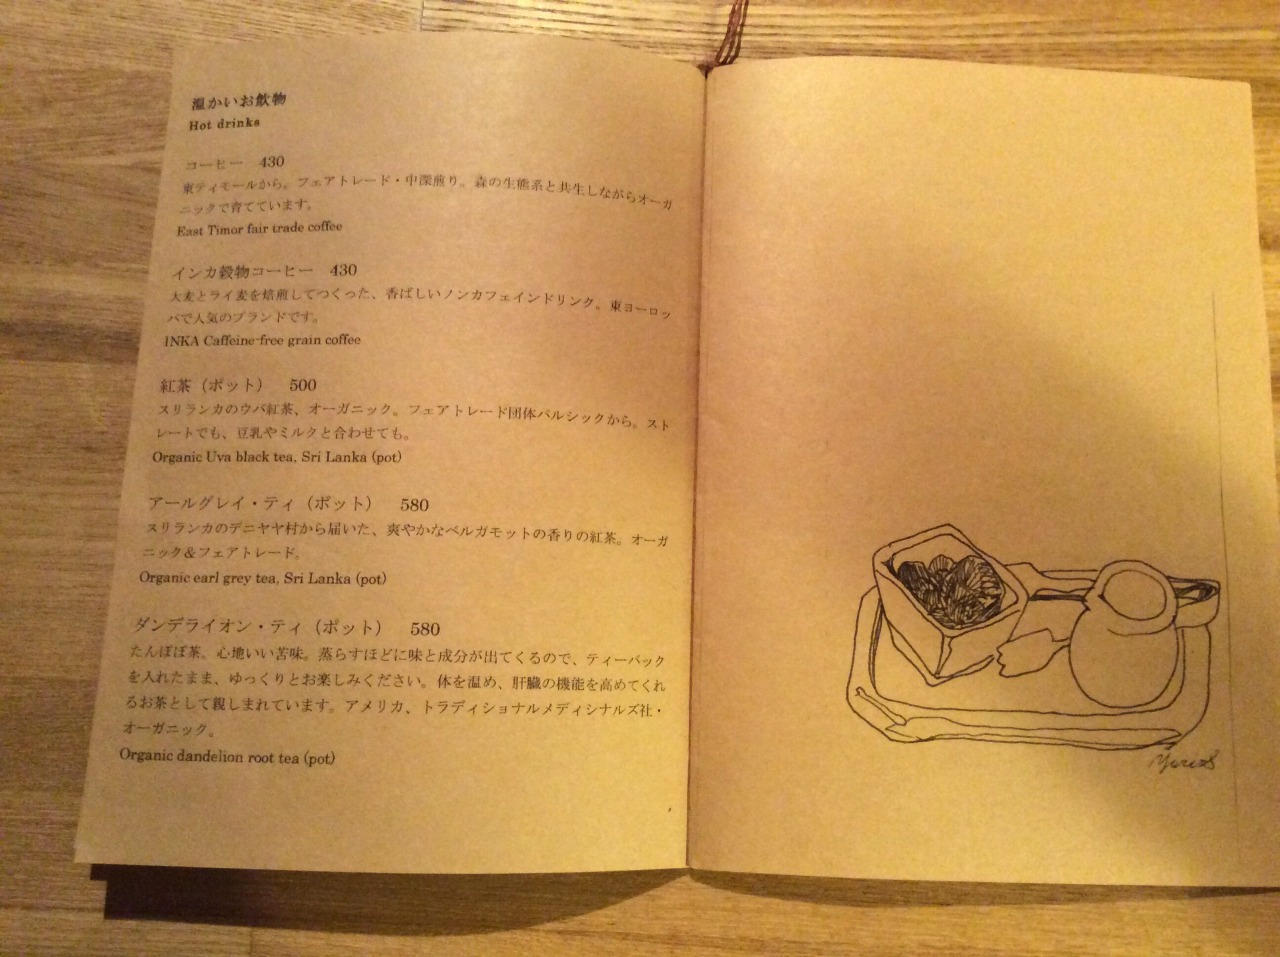 温かいお飲物
Hot drinks
コーヒー 430
東ティモールから。フェアトレード・中深煎り。森の生態系と共生しながらオーガ
ニックで育てています。
East Timor fair trade coffee
インカ穀物コーヒー 430
大麦とライ麦を焙煎してつくった、香ばしいノンカフェインドリンク。東ヨーロッ
パで人気のブランドです。
INKA Caffeine-free grain coffee
紅茶（ポット） 500
スリランカのウバ紅茶、オーガニック。フェアトレード団体パルシックから。スト
レートでも、豆乳やミルクと合わせても。
Organic Uva black tea, Sri Lanka (pot)
アールグレイ・ティ（ポット） 580
スリランカのデニヤヤ村から届いた、爽やかなベルガモットの香りの紅茶。オーガ
ニック＆フェアトレード。
Organic earl grey tea, Sri Lanka (pot)
ダンデライオン・ティ（ポット） 580
たんぽぽ茶。心地いい苦味。蒸らすほどに味と成分が出てくるので、ティーバック
を入れたまま、ゆっくりとお楽しみください。体を温め、肝臓の機能を高めてくれ
るお茶として親しまれています。アメリカ、トラディショナルメディシナルズ社・
オーガニック。
Organic dandelion root tea (pot)